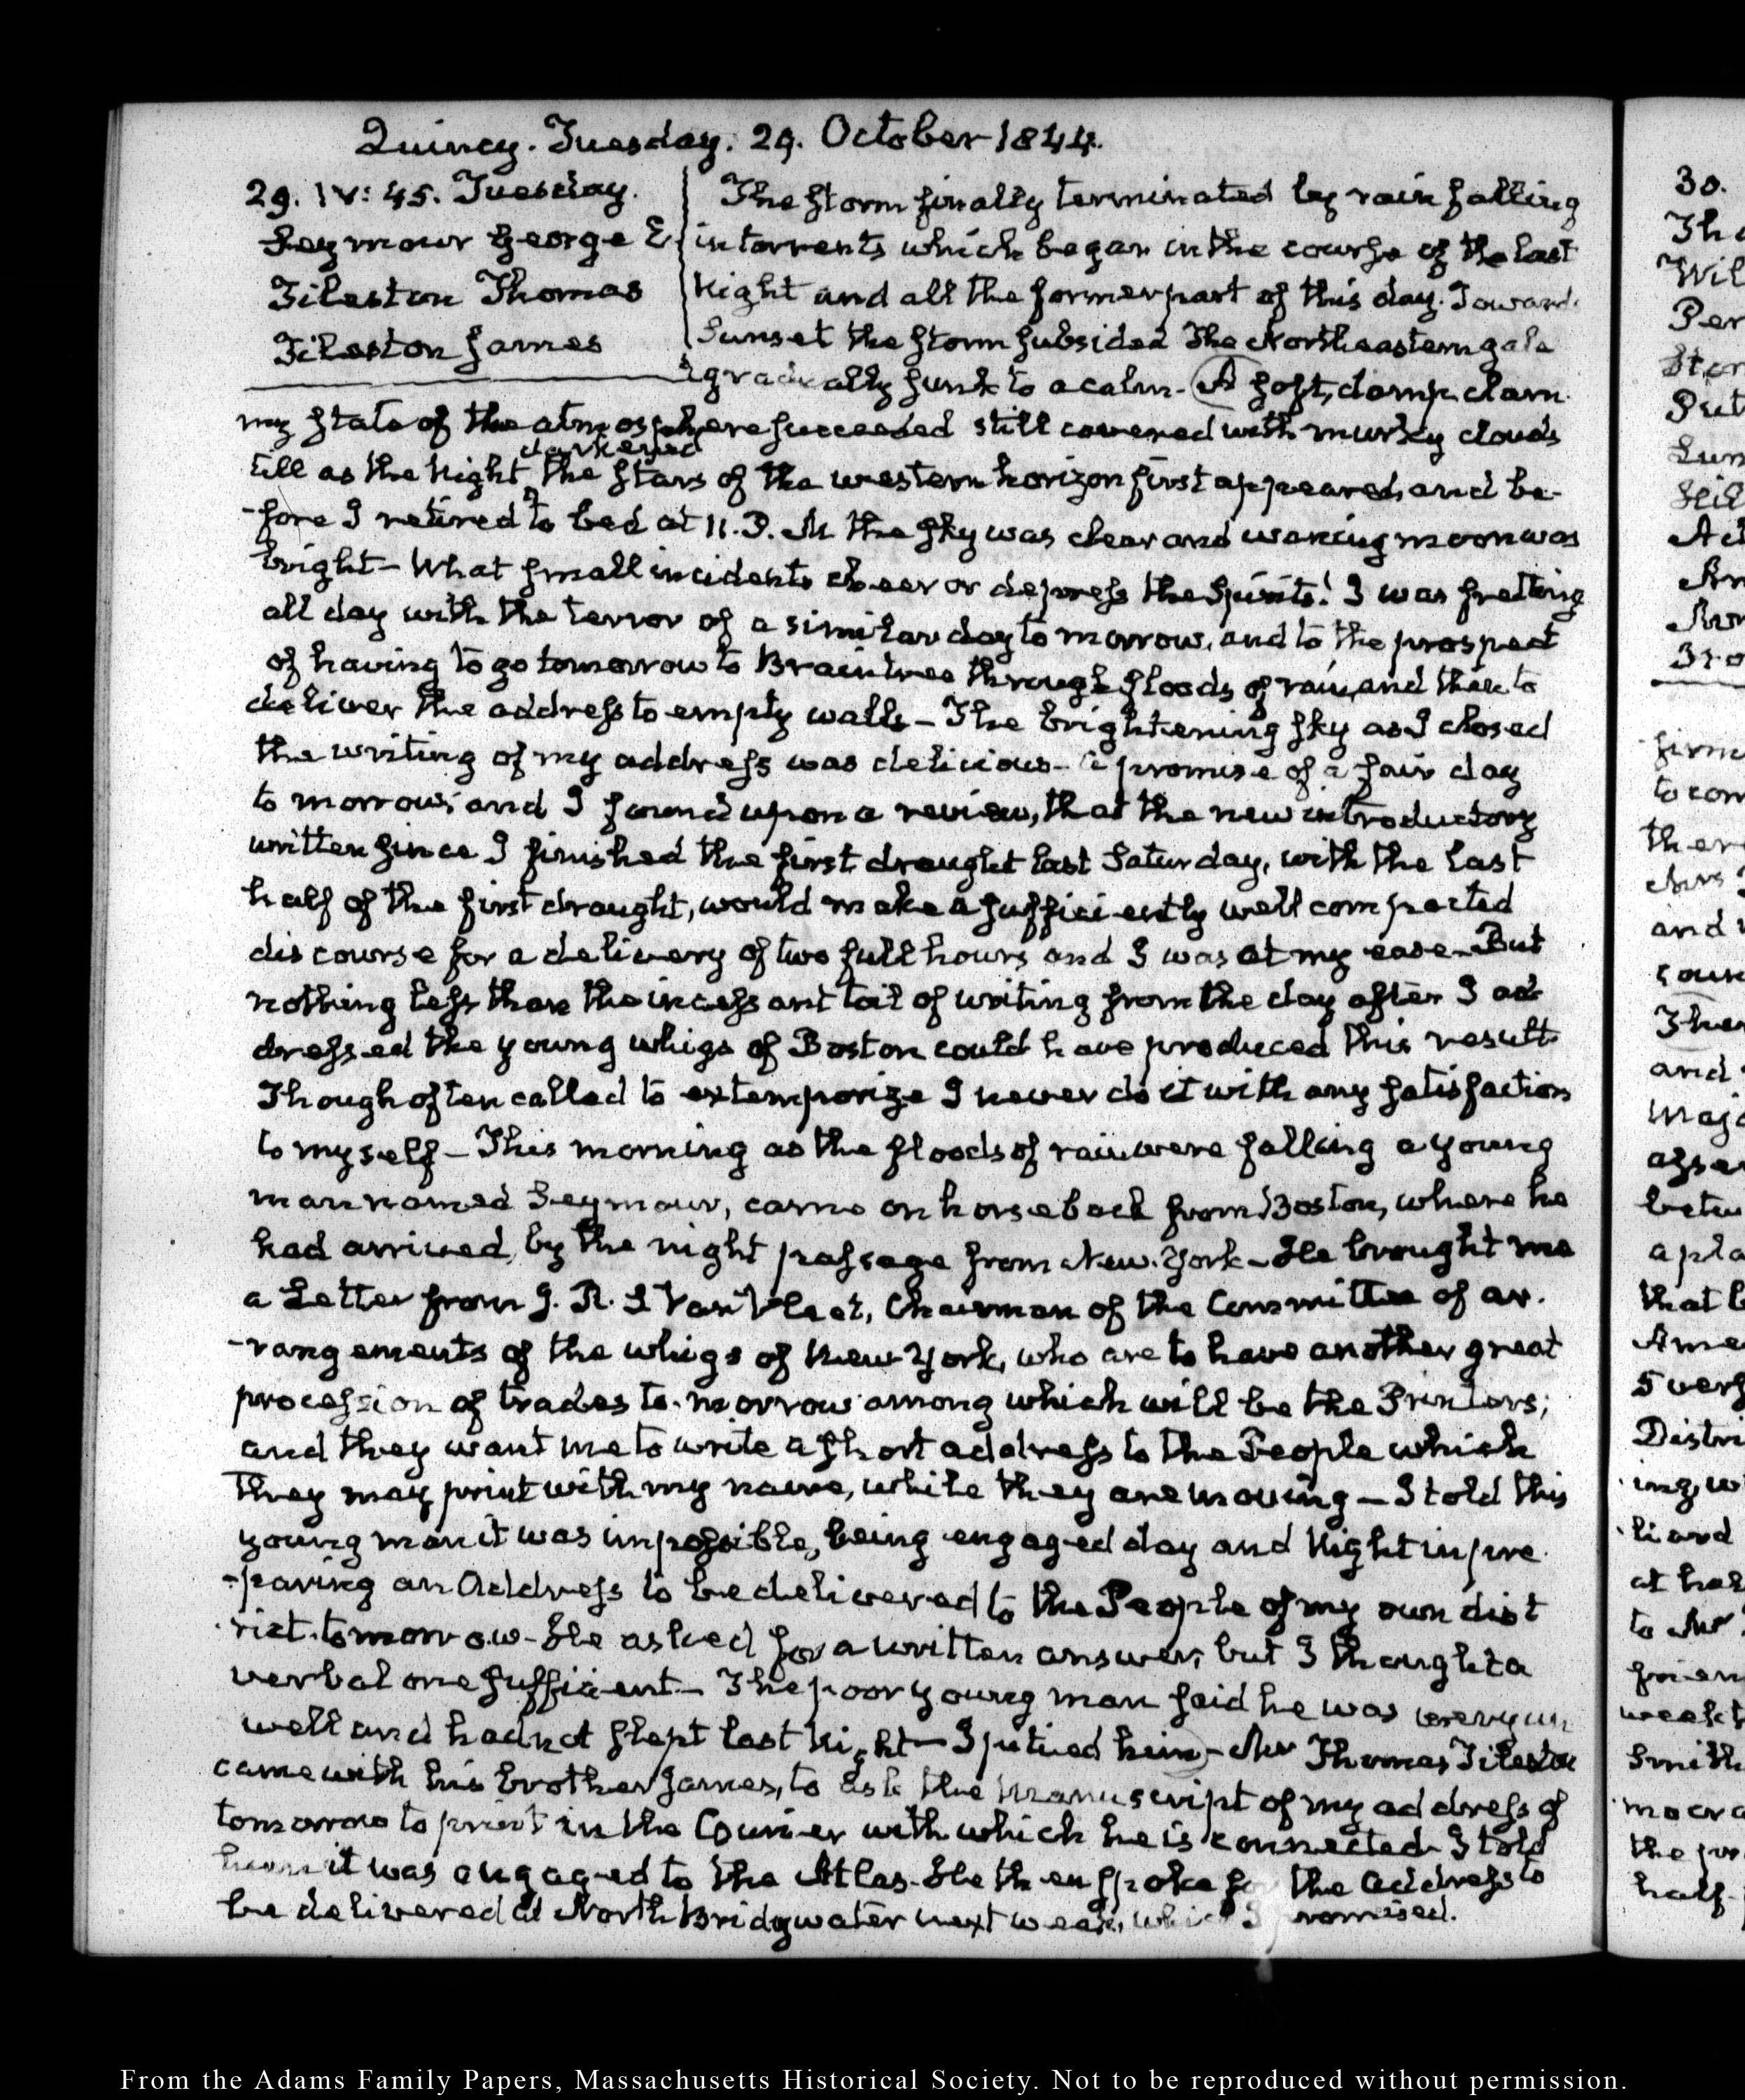 Quincy. Tuesday. 29. October 1844.
29. IV: 45. Tuesday.
Seymour George E
Tileston Thomas
Tileston James
The storm finally terminated by rain falling
in torrents which began in the course of the last
Night and all the former part of this day. Toward
Sunset the storm subsided The Northeastern gale
gradually sunk to a calm. A soft, damp, clam-
my state of the atmosphere succeeded still covered with murky clouds
till as the Night darkened the stars of the western horizon first appeared, and be-
-fore I retired to bed at 11. P. M the sky was clear and waning moon was
bright— What small incidents cheer or depress the Spirits! I was fretting
all day with the terror of a similar day to morrow, and to the prospect
of having to go tomorrow to Braintree through floods of rain, and then to
deliver the address to empty walls— The brightening sky as I closed
the writing of my address was delicious— a promise of a fair day
to morrow; and I found upon a review, that the new introductory
written since I finished the first draught last Saturday, with the last
half of the first draught, would make a sufficiently well compacted
discourse for a delivery of two full hours and I was at my ease— But
nothing less than the incessant toil of writing from the day after I ad-
dressed the young whigs of Boston could have produced this result
Though often called to extemporize I never do it with any satisfaction
to myself— This morning as the floods of rain were falling a young
man named Seymour, came on horseback from Boston, where he
had arrived, by the night passage from New-York— He brought me
a Letter from J. R. S Van Vleet, Chairman of the Committee of ar-
-rangements of the whigs of New-York, who are to have another great
procession of trades to-morrow among which will be the Printers;
and they want me to write a short address to the People which
they may print with my name, while they are moving— I told this
young man it was impossible, being engaged day and Night in pre
-paring an Address to be delivered to the People of my own dist
-rict tomorrow— He asked for a written answer, but I thought a
verbal one sufficient— The poor young man said he was very un
well and had not slept last Night— I pitied him— Mr Thomas Tileston
came with his brother James, to ask the Manuscript of my address of
tomorrow to print in the Courier with which he is connected— I told
him it was engaged to the Atlas. He then spoke for the address to
be delivered at North Bridgwater next week, which I promised.
30.
From the Adams Family Papers, Massachusetts Historical Society. Not to be reproduced without permission.